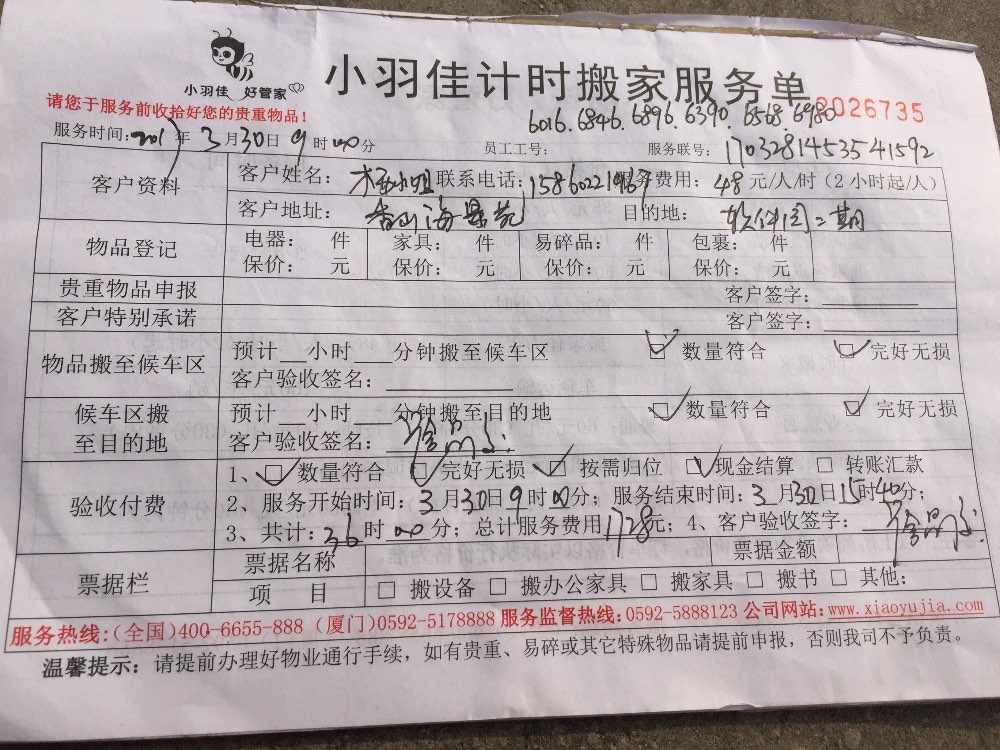 小羽佳 好管家
小羽佳计时搬家服务单
请您于服务前收拾好您的贵重物品!
6016.6846.6896.6390.6568.6980
2026735
服务时间:2017年3月30日9时00分 员工工号: 服务联号:1703281453541592
客户资料 客户姓名: 小姐 联系电话:15860221967 服务费用:48元/人/时(2小时起/人)
客户地址:香山海景苑 目的地:软件园二期
物品登记 电器: 件 家具: 件 易碎品: 件 包裹: 件
保价: 元 保价: 元 保价: 元 保价: 元
贵重物品申报 客户签字:
客户特别承诺 客户签字:
物品搬至候车区 预计__小时___分钟搬至候车区 ☑ 数量符合 ☑ 完好无损
客户验收签名:
候车区搬至目的地 预计__小时___分钟搬至目的地 ☑ 数量符合 ☑ 完好无损
客户验收签名:
验收付费 1、☑数量符合 ☑完好无损 ☑按需归位 ☑现金结算 □转账汇款
2、服务开始时间:3月30日9时00分;服务结束时间:3月30日15时40分;
3、共计:36时00分;总计服务费用1728元;4、客户验收签字:
票据栏 票据名称 票据金额
项 目 □ 搬设备 □ 搬办公家具 □ 搬家具 □ 搬书 □ 其他:
服务热线:(全国)400-6655-888 (厦门)0592-5178888 服务监督热线:0592-5888123 公司网站:www.xiaoyujia.com
温馨提示:请提前办理好物业通行手续,如有贵重、易碎或其它特殊物品请提前申报,否则我司不予负责。